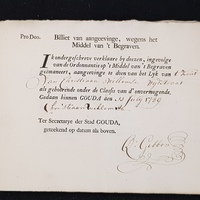 Pro Deo. Billiet van aangeevinge, wegens het
Middel van 't Begraven.
Ik ondergeschreve verklaare by deezen, ingevolge
van de Ordonnantie op 't Middel van 't Begraven
geëmaneert, aangeevinge te doen van het Lyk van 't Kind
van
als gehoorende onder de Classis van d'onvermogende.
Gedaan binnen GOUDA, den July 1789
Ter Secretarye der Stad GOUDA,
geteekend op datum als boven.